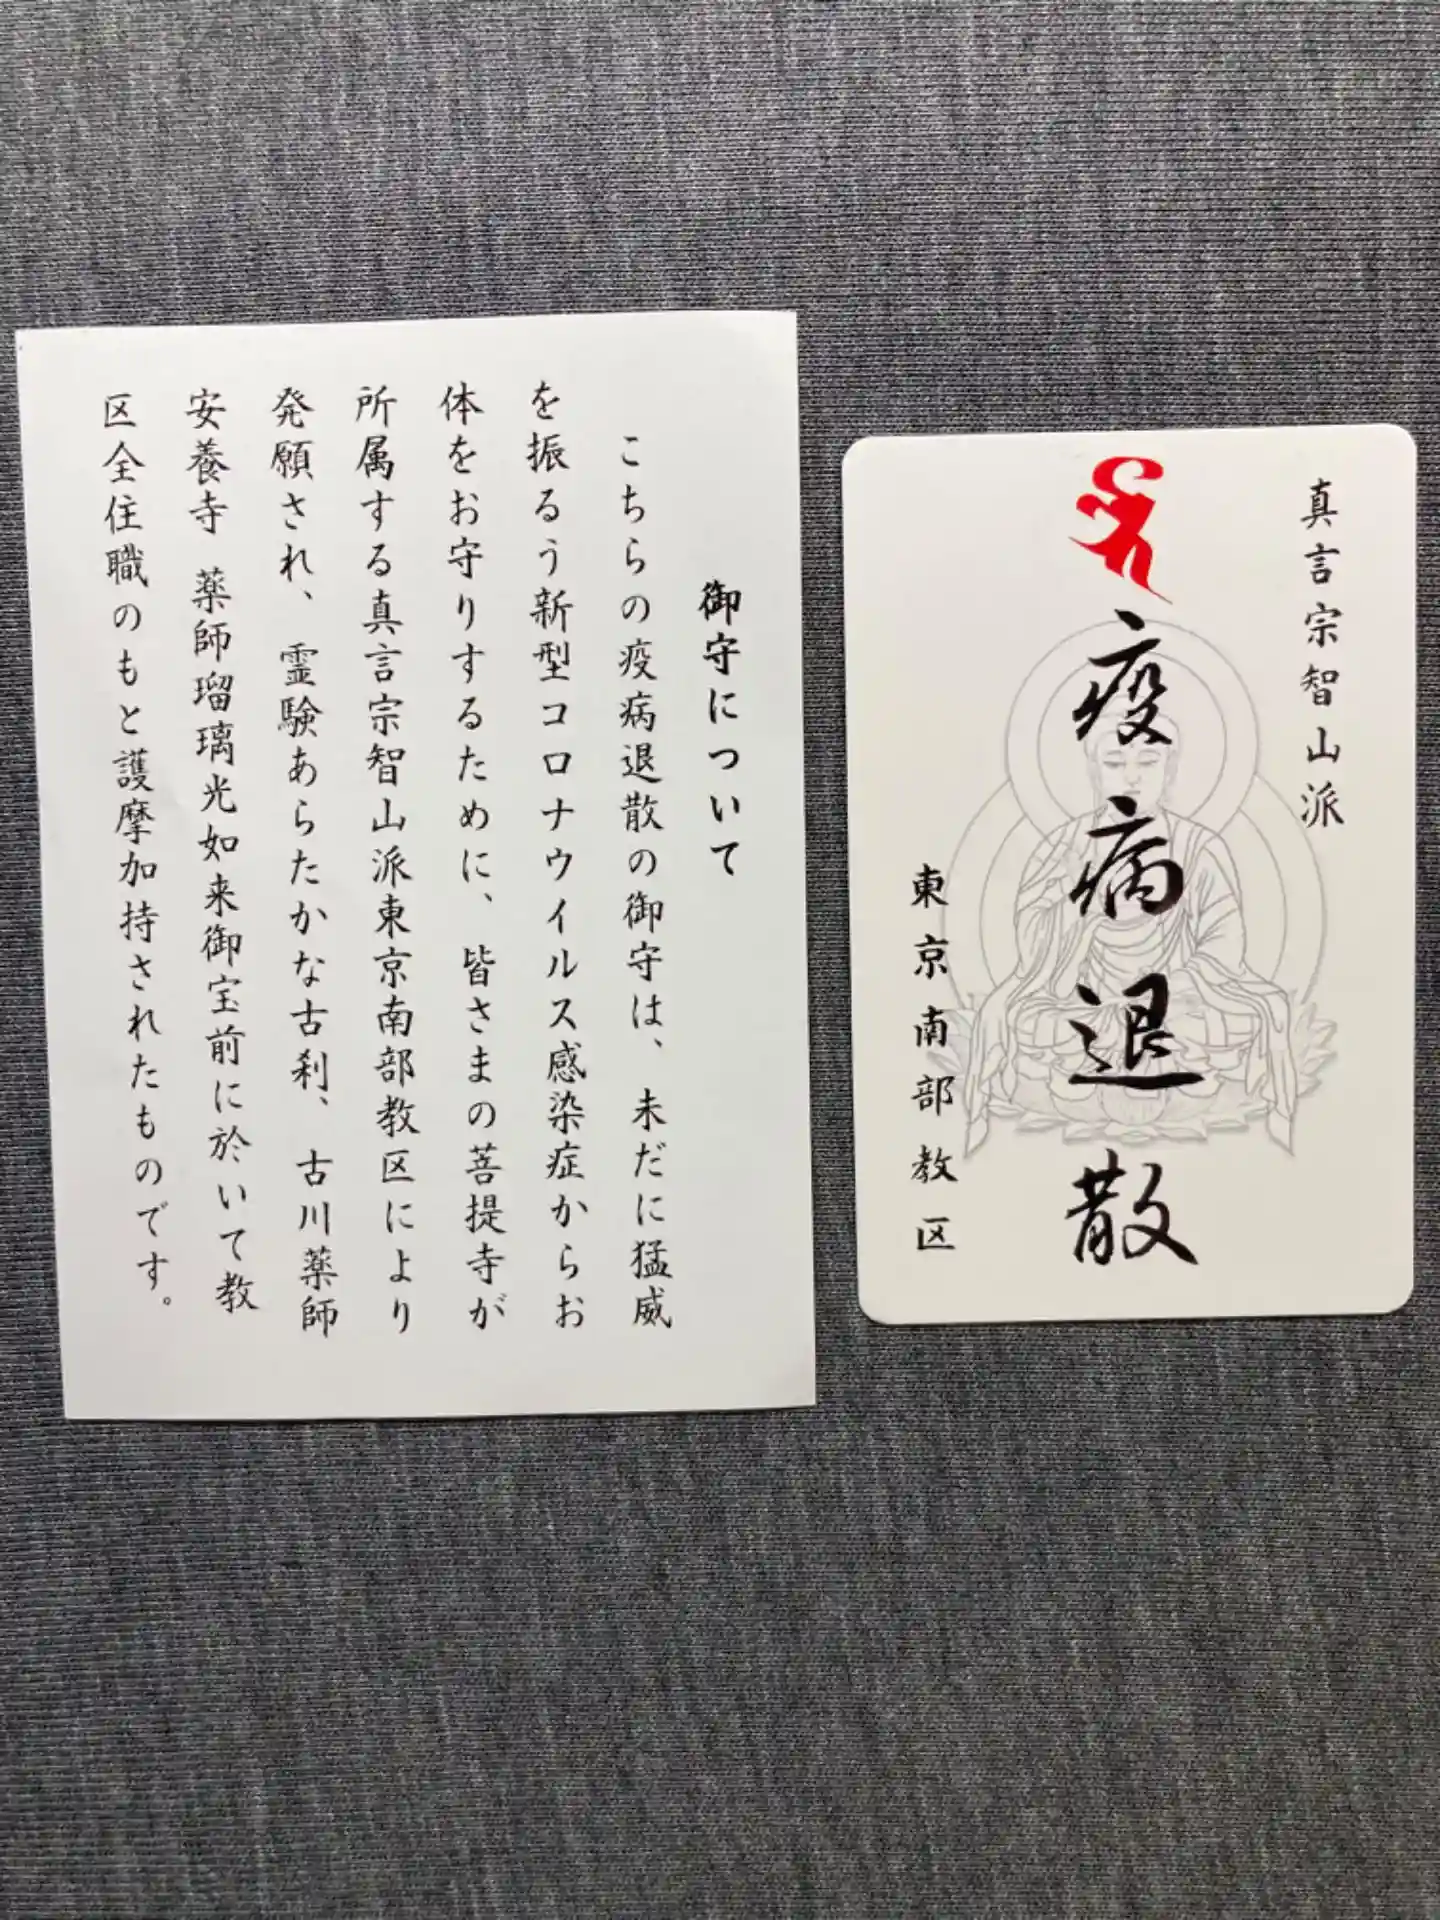 御守について
こちらの疫病退散の御守は、未だに猛威
を振るう新型コロナウイルス感染症からお
体をお守りするために、皆さまの菩提寺が
所属する真言宗智山派東京南部教区により
発願され、霊験あらたかな古刹、古川薬師
安養寺 薬師瑠璃光如来御宝前に於いて教
区全住職のもと護摩加持されたものです。
真言宗智山派
疫病退散
東京南部教区